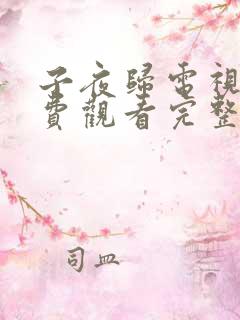 子夜歸電視
費觀看完整
司皿